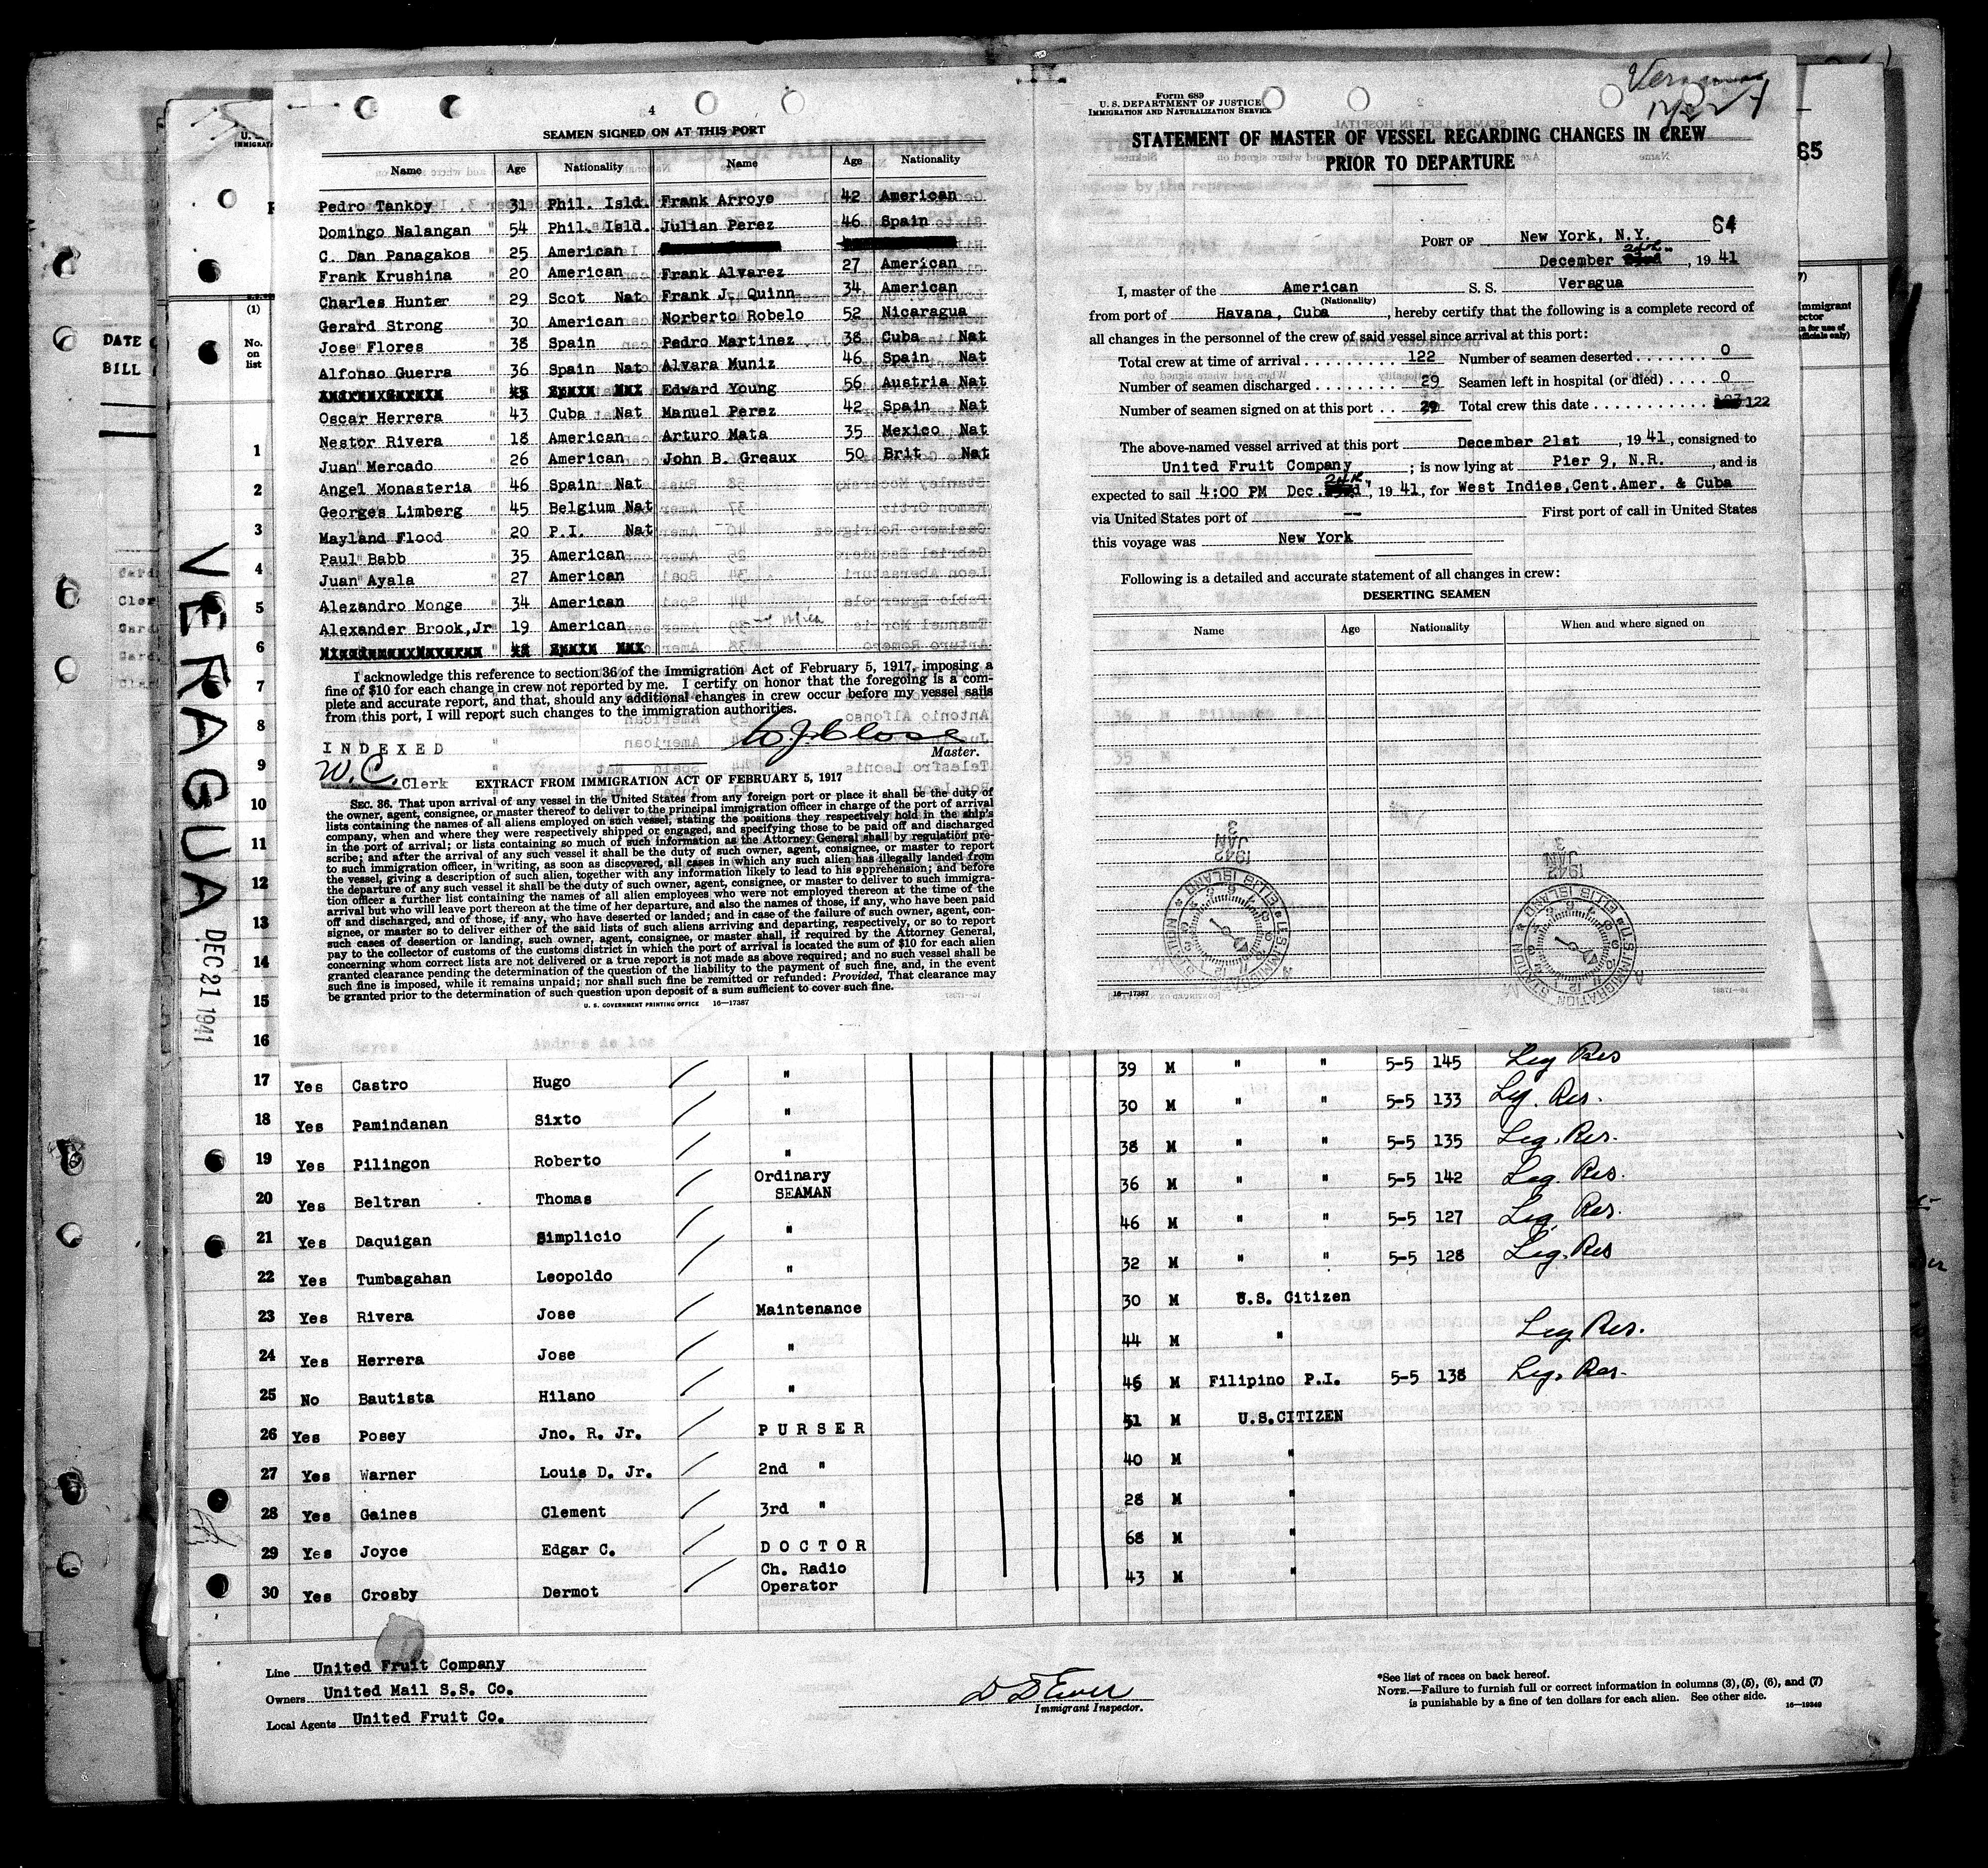 4
SEAMEN SIGNED ON AT THIS PORT
Name Age Nationality Name Age Nationality
Pedro Tankoy " 31 Phil. Isld. Frank Arroyo 42 American
Domingo Nalangan " 54 Phil. Isld. Julian Perez 46 Spain
C. Dan Panagakos " 25 American
Frank Krushina " 20 American Frank Alvarez 27 American
Charles Hunter " 29 Scot Nat Frank J. Quinn 34 American
Gerard Strong " 30 American Norberto Robelo 52 Nicaragua
Jose Flores " 38 Spain Pedro Martinez 38 Cuba Nat
Alfonso Guerra " 36 Spain Nat Alvara Muniz 46 Spain Nat
Edward Young 56 Austria Nat
Oscar Herrera " 43 Cuba Nat Manuel Perez 42 Spain Nat
Nestor Rivera " 18 American Arturo Mata 35 Mexico Nat
Juan Mercado " 26 American John B. Greaux 50 Brit Nat
Angel Monasteria " 46 Spain Nat
Georges Limberg " 45 Belgium Nat
Mayland Flood " 20 P.I. Nat
Paul Babb " 35 American
Juan Ayala " 27 American
Alezandro Monge " 34 American
Alexander Brook, Jr " 19 American
I acknowledge this reference to section 36 of the Immigration Act of February 5, 1917, imposing a
fine of $10 for each change in crew not reported by me. I certify on honor that the foregoing is a com-
plete and accurate report, and that, should any additional changes in crew occur before my vessel sails
from this port, I will report such changes to the immigration authorities.
W.J. Close
INDEXED
Master.
W.C. Clerk
EXTRACT FROM IMMIGRATION ACT OF FEBRUARY 5, 1917
SEC. 36. That upon arrival of any vessel in the United States from any foreign port or place it shall be the duty of
the owner, agent, consignee, or master thereof to deliver to the principal immigration officer in charge of the port of arrival
lists containing the names of all aliens employed on such vessel, stating the positions they respectively hold in the ship's
company, when and where they were respectively shipped or engaged, and specifying those to be paid off and discharged
in the port of arrival; or lists containing so much of such information as the Attorney General shall by regulation pre-
scribe; and after the arrival of any such vessel it shall be the duty of such owner, agent, consignee, or master to report
to such immigration officer, in writing, as soon as discovered, all cases in which any such alien has illegally landed from
the vessel, giving a description of such alien, together with any information likely to lead to his apprehension; and before
the departure of any such vessel it shall be the duty of such owner, agent, consignee, or master to deliver to such immigra-
tion officer a further list containing the names of all alien employees who were not employed thereon at the time of the
arrival but who will leave port thereon at the time of her departure, and also the names of those, if any, who have been paid
off and discharged, and of those, if any, who have deserted or landed; and in case of the failure of such owner, agent, con-
signee, or master so to deliver either of the said lists of such aliens arriving and departing, respectively, or so to report
such cases of desertion or landing, such owner, agent, consignee, or master shall, if required by the Attorney General,
pay to the collector of customs of the customs district in which the port of arrival is located the sum of $10 for each alien
concerning whom correct lists are not delivered or a true report is not made as above required; and no such vessel shall be
granted clearance pending the determination of the question of the liability to the payment of such fine, and, in the event
such fine is imposed, while it remains unpaid; nor shall such fine be remitted or refunded: Provided, That clearance may
be granted prior to the determination of such question upon deposit of a sum sufficient to cover such fine.
U. S. GOVERNMENT PRINTING OFFICE 16—17387
Form 689
U. S. DEPARTMENT OF JUSTICE
IMMIGRATION AND NATURALIZATION SERVICE
STATEMENT OF MASTER OF VESSEL REGARDING CHANGES IN CREW
PRIOR TO DEPARTURE
64
PORT OF New York, N.Y.
December 24th, 1941
I, master of the American S. S. Veragua
(Nationality)
from port of Havana, Cuba, hereby certify that the following is a complete record of
all changes in the personnel of the crew of said vessel since arrival at this port:
Total crew at time of arrival 122 Number of seamen deserted 0
Number of seamen discharged 29 Seamen left in hospital (or died) 0
Number of seamen signed on at this port 29 Total crew this date 122
The above-named vessel arrived at this port December 21st, 1941, consigned to
United Fruit Company; is now lying at Pier 9, N.R., and is
expected to sail 4:00 PM Dec. 24th, 1941, for West Indies, Cent. Amer. & Cuba
via United States port of -- First port of call in United States
this voyage was New York
Following is a detailed and accurate statement of all changes in crew:
DESERTING SEAMEN
Name Age Nationality When and where signed on
JAN 3 1942
JAN 3 1942
U.S. IMMIGRATION STATION ELLIS ISLAND
U.S. IMMIGRATION STATION ELLIS ISLAND
16—17387
65
DATE
BILL
VERAGUA DEC 21 1941
(1)
No. on list
1
2
3
4
5
6
7
8
9
10
11
12
13
14
15
16
17 Yes Castro Hugo " 39 M " " 5-5 145 Leg Res
18 Yes Pamindanan Sixto " 30 M " " 5-5 133 Leg. Res.
19 Yes Pilingon Roberto " 38 M " " 5-5 135 Leg. Res.
20 Yes Beltran Thomas Ordinary SEAMAN 36 M " " 5-5 142 Leg. Res.
21 Yes Daquigan Simplicio " 46 M " " 5-5 127 Leg. Res.
22 Yes Tumbagahan Leopoldo " 32 M " " 5-5 128 Leg. Res
23 Yes Rivera Jose Maintenance 30 M U.S. Citizen
24 Yes Herrera Jose " 44 M " Leg Res.
25 No Bautista Hilano " 45 M Filipino P.I. 5-5 138 Leg. Res.
26 Yes Posey Jno. R. Jr. PURSER 51 M U.S.CITIZEN
27 Yes Warner Louis D. Jr. 2nd " 40 M "
28 Yes Gaines Clement 3rd " 28 M "
29 Yes Joyce Edgar C. DOCTOR 68 M "
30 Yes Crosby Dermot Ch. Radio Operator 43 M "
Line United Fruit Company
Owners United Mail S.S. Co.
Local Agents United Fruit Co.
Immigrant Inspector.
*See list of races on back hereof.
NOTE.—Failure to furnish full or correct information in columns (3), (5), (6), and (7)
is punishable by a fine of ten dollars for each alien. See other side. 16—19349